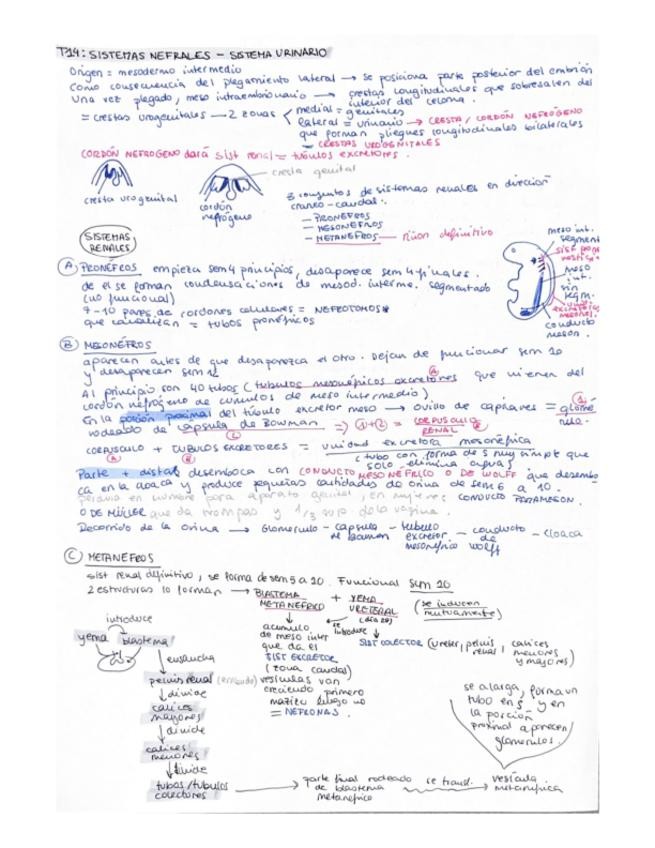 T14: SISTEMAS NEFRALES – SISTEMA URINARIO
Origen = mesodermo intermedio
Como consecuencia del plegamiento lateral → se posiciona parte posterior del embrión
Una vez plegado, meso intraembrionario → crestas longitudinales que sobresalen del interior del celoma.
= crestas urogenitales → 2 zonas < medial = genitales
lateral = urinario → CRESTA / CORDÓN NEFRÓGENO
que forman pliegues longitudinales bilaterales
= CRESTAS UROGENITALES
CORDÓN NEFRÓGENO dará sist renal = túbulos excretores.
cresta genital
cresta urogenital
cordón nefrógeno
3 conjuntos de sistemas renales en dirección
craneo-caudal:
– PRONEFROS
– MESONEFROS
– METANEFROS → riñón definitivo
SISTEMAS RENALES
meso int.
segment
meso
int.
sin
segm.
conducto
meson.
A PRONEFROS empieza sem 4 principios, desaparece sem 4 finales.
de el se forman condensaciones de mesod. interme. segmentado
(no funcional)
7-10 pares de cordones celulares = NEFROTOMOS
que canalizan = tubos pronéfricos
B MESONÉFROS
aparecen antes de que desaparezca el otro. Dejan de funcionar sem 10
y desaparecen sem 12
Al principio son 40 tubos (tubulos mesonéfricos excretores que vienen del
cordón nefrógeno de cúmulos de meso intermedio)
En la porción proximal del túbulo excretor meso → ovillo de capilares = glomé
rulo.
rodeado de capsula de Bowman => 1+2 = CORPUSCULO RENAL
CORPUSCULO + TUBULOS EXCRETORES = unidad excretora mesonéfrica
A B
(tubo con forma de S muy simple que
solo elimina orina)
Parte + distal desemboca con CONDUCTO MESONEFRICO O DE WOLFF que desembo
ca en la cloaca y produce pequeñas cantidades de orina de sem 6 a 10.
en hombre para aparato genital, en mujeres CONDUCTO PARAMESON.
O DE MÜLLER que da trompas y 1/3 sup. de la vagina.
Recorrido de la orina → Glomerulo – capsula de Bowman – tubulo excretor mesonéfrico – conducto de Wolff – Cloaca
C METANEFROS
Sist renal definitivo, se forma de sem 5 a 10. Funcional sem 10
2 estructuras lo forman → BLASTEMA METANEFRICO + YEMA URETERAL (dia 28) (se inducen mutuamente)
introduce
yema blastema
se introduce
acumulo
de meso inter
que da el
SIST EXCRETOR
(zona caudal)
vesículas van
creciendo primero
macizu luego no
= NEFRONAS.
SIST COLECTOR (ureter, pelvis renal, calices menores y mayores)
↓ ensancha
pelvis renal
↓ divide
calices mayores
↓ divide
calices menores
↓ divide
tubos/tubulos colectores → parte final rodeado de blastema metanefrico → se transf. → vesícula metanefrica
se alarga, forma un
tubo en S y en
la porción
proximal aparecen
glomerulos.